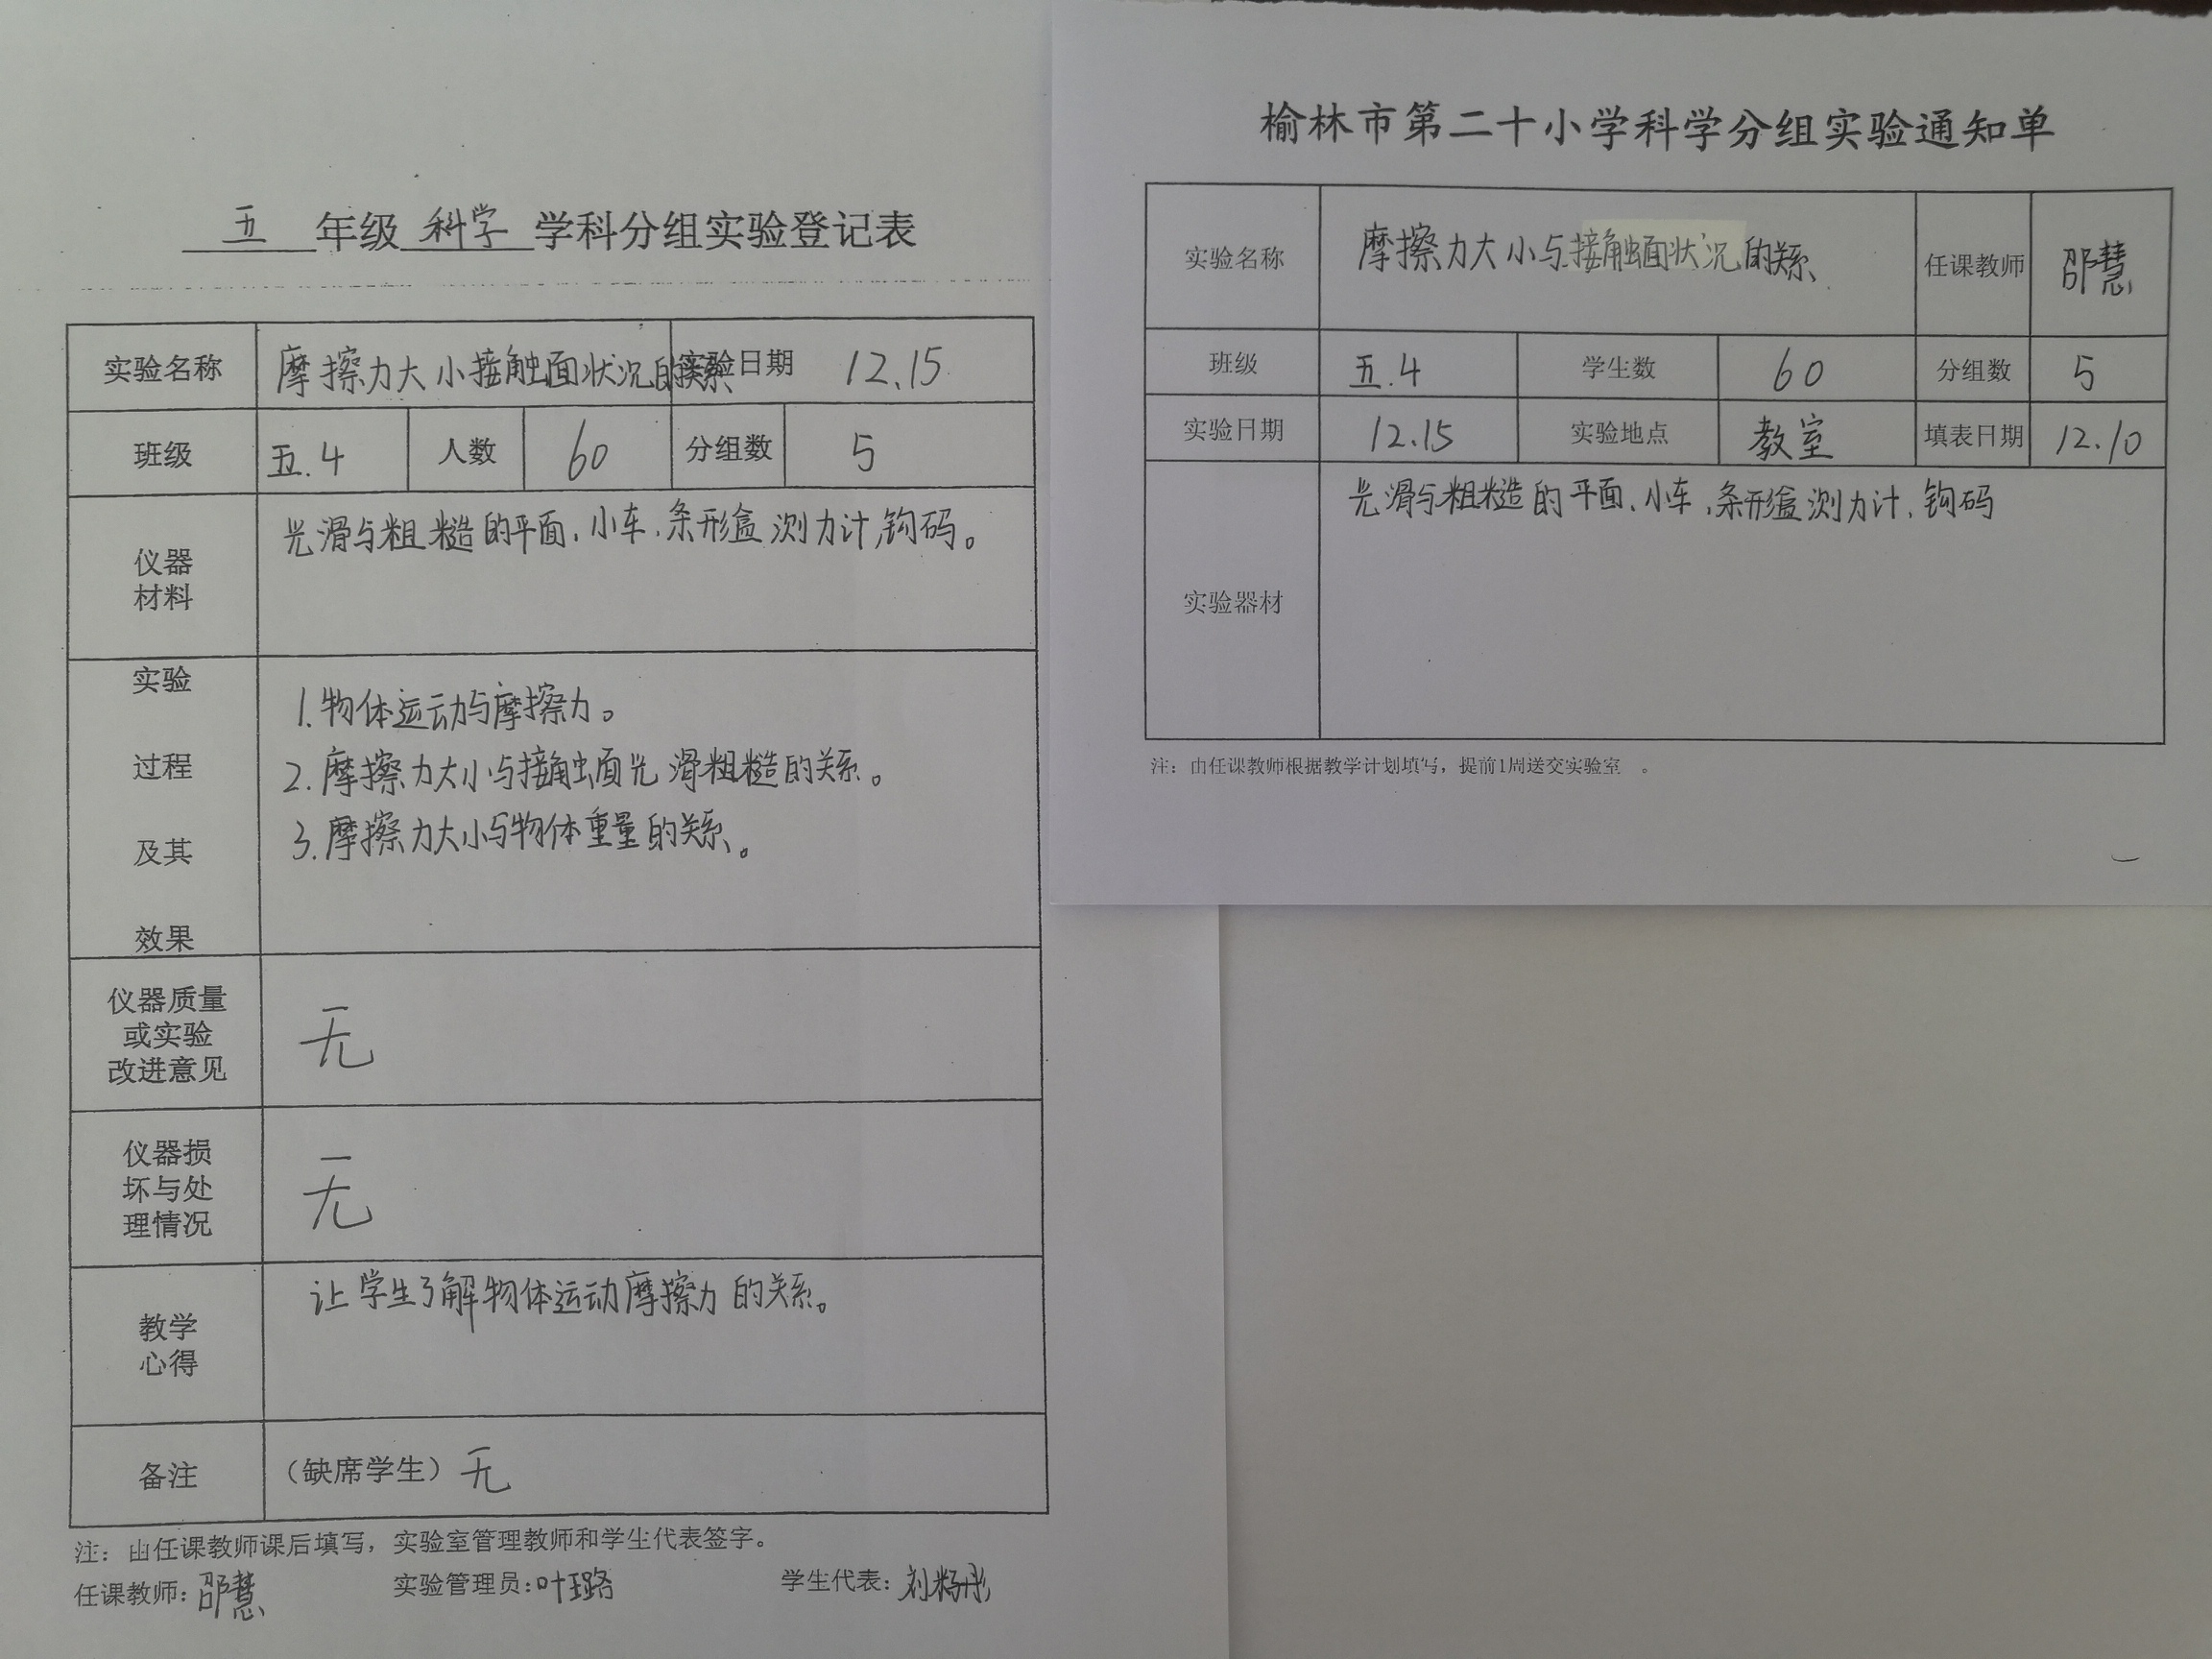 五 年级 科学 学科分组实验登记表
实验名称 摩擦力大小接触面状况的关系 实验日期 12.15
班级 五.4 人数 60 分组数 5
仪器
材料
光滑与粗糙的平面、小车、条形盒测力计,钩码。
实验
过程
及其
效果
1.物体运动与摩擦力。
2.摩擦力大小与接触面光滑粗糙的关系。
3.摩擦力大小与物体重量的关系。
仪器质量
或实验
改进意见
无
仪器损
坏与处
理情况
无
教学
心得
让学生了解物体运动摩擦力的关系。
备注 (缺席学生) 无
注：由任课教师课后填写，实验室管理教师和学生代表签字。
任课教师: 邵慧 实验管理员: 叶璐 学生代表: 刘杨彤
榆林市第二十小学科学分组实验通知单
实验名称 摩擦力大小与接触面状况的关系 任课教师 邵慧
班级 五.4 学生数 60 分组数 5
实验日期 12.15 实验地点 教室 填表日期 12.10
实验器材 光滑与粗糙的平面、小车、条形盒测力计、钩码
注：由任课教师根据教学计划填写，提前1周送交实验室 。